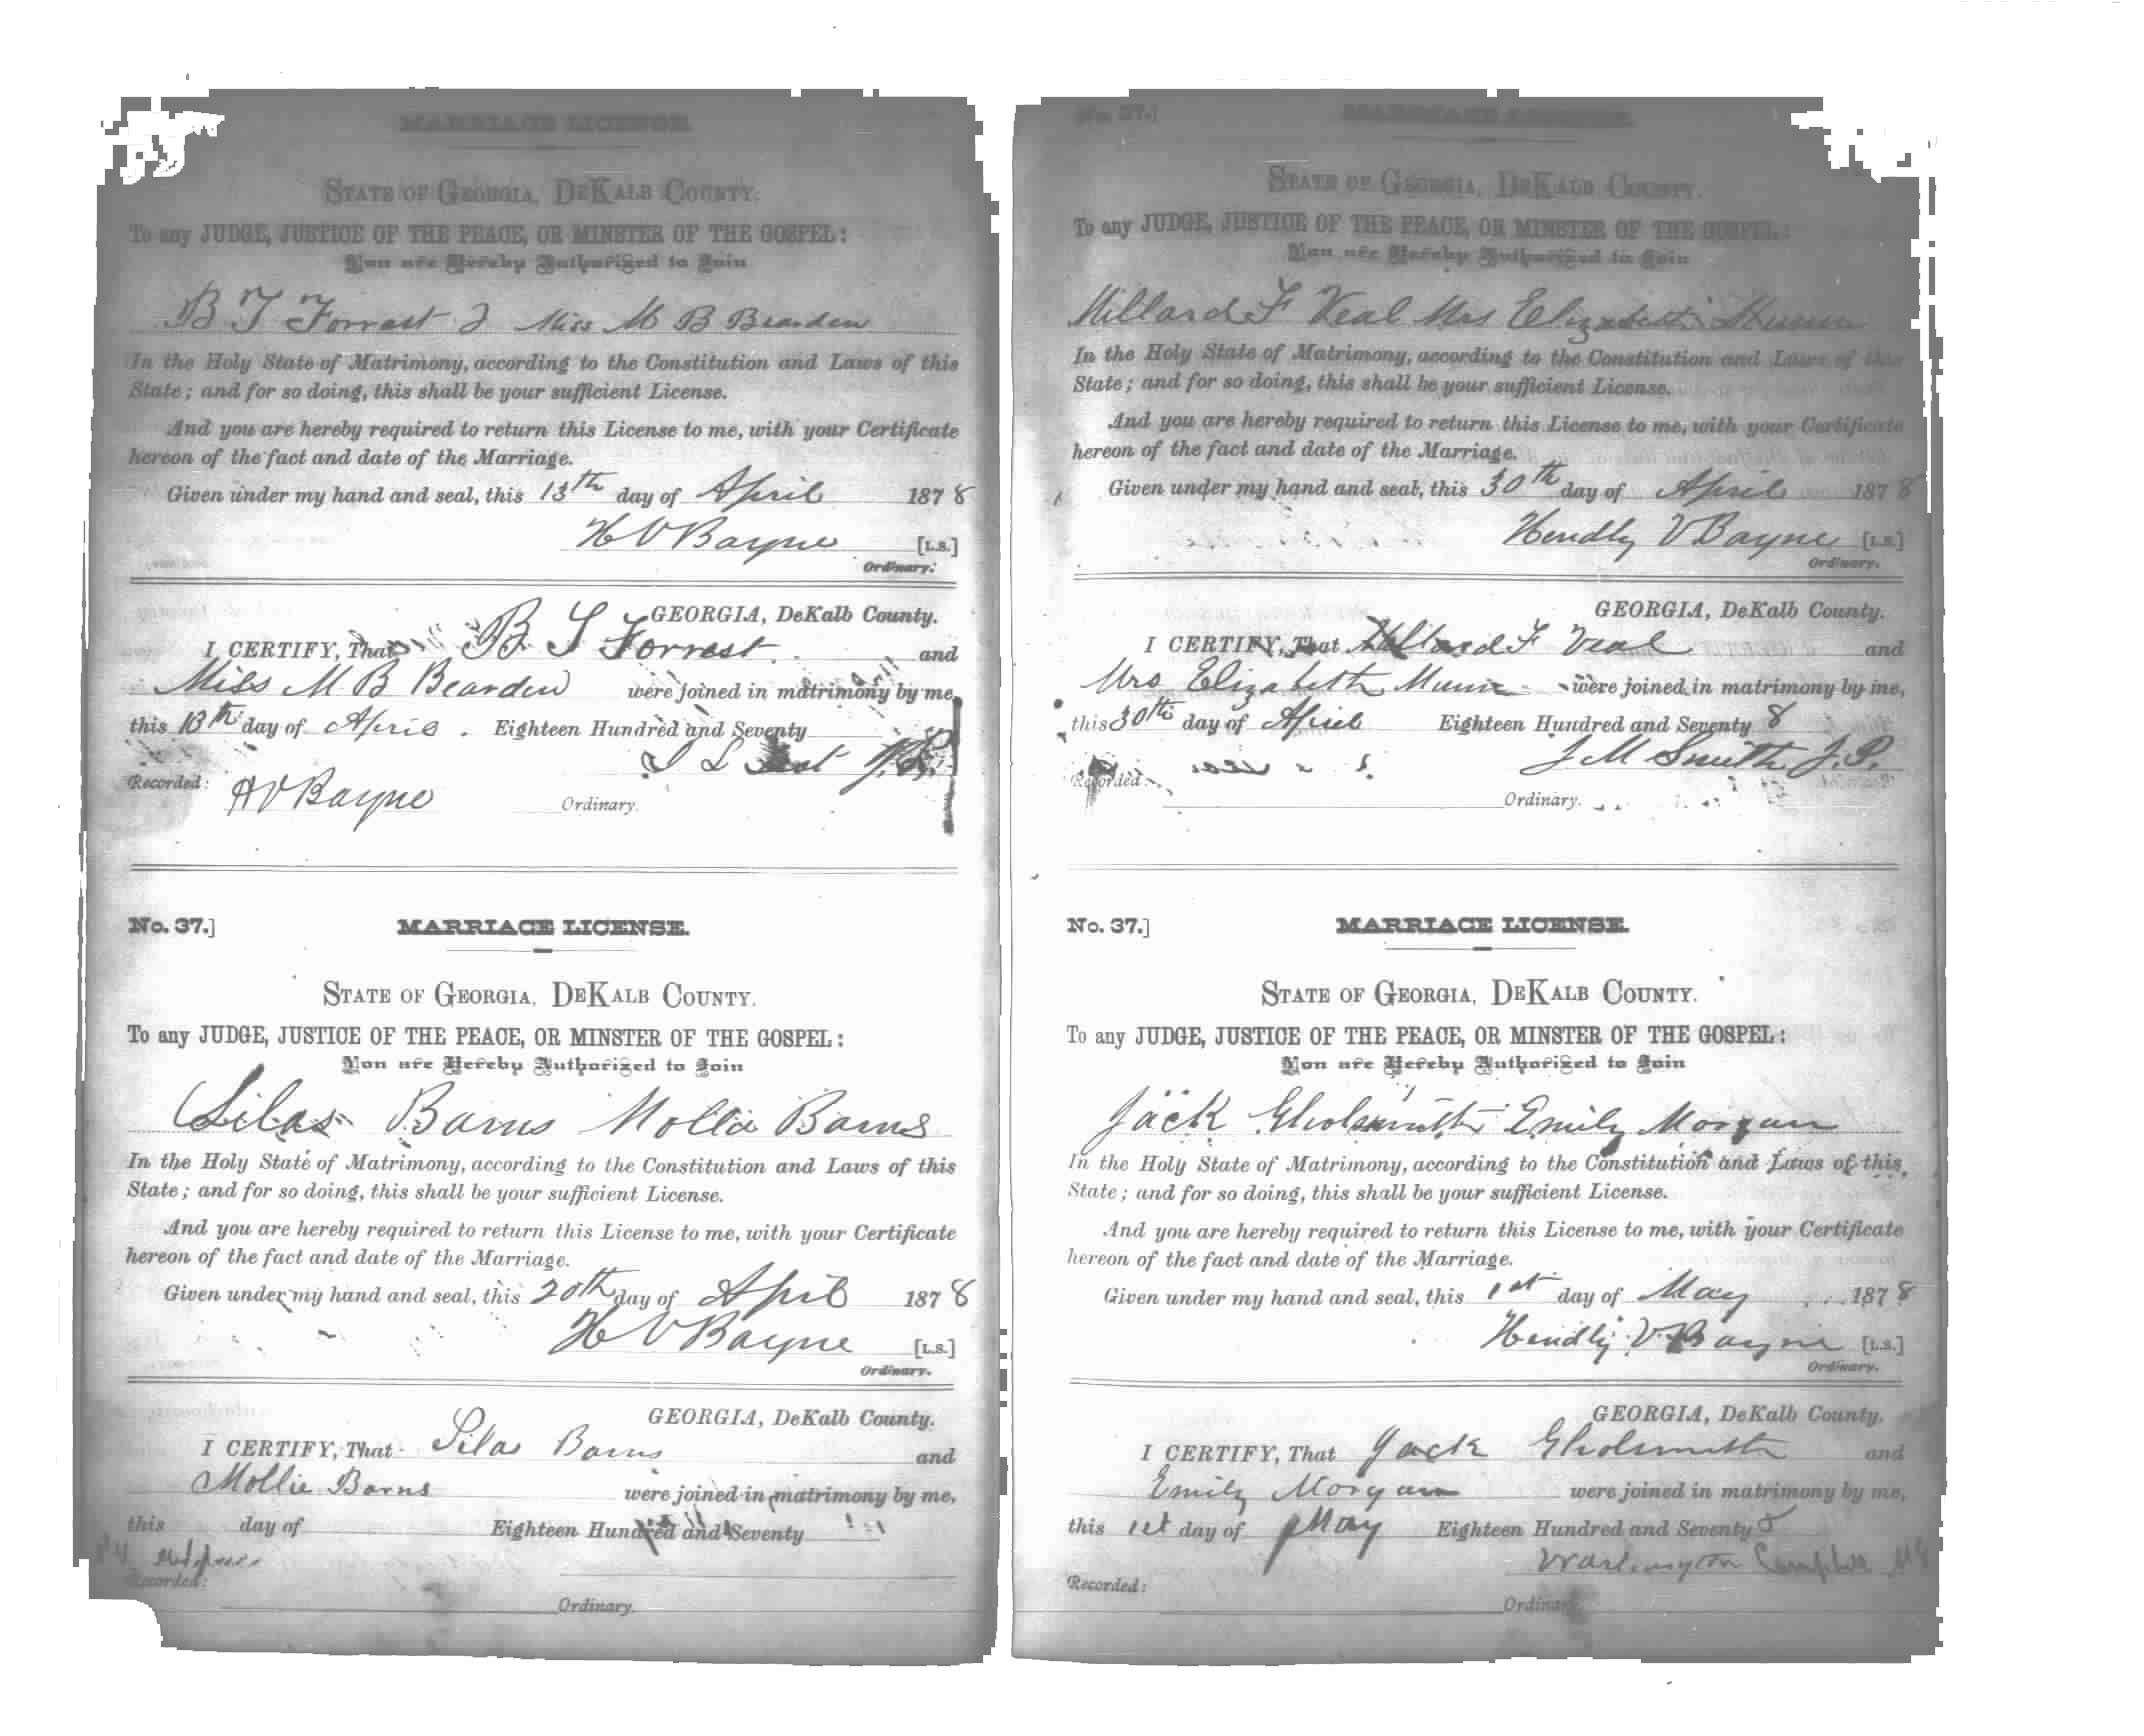 MARRIAGE LICENSE.
STATE OF GEORGIA, DEKALB COUNTY.
To any JUDGE, JUSTICE OF THE PEACE, OR MINSTER OF THE GOSPEL:
You are Hereby Authorized to Join
B T Forrest & Miss M B Bearden
In the Holy State of Matrimony, according to the Constitution and Laws of this
State; and for so doing, this shall be your sufficient License.
And you are hereby required to return this License to me, with your Certificate
hereon of the fact and date of the Marriage.
Given under my hand and seal, this 13th day of April 1878
H V Bayne [L.S.]
Ordinary.
GEORGIA, DeKalb County.
I CERTIFY, That B T Forrest and
Miss M B Bearden were joined in matrimony by me,
this 13th day of April. Eighteen Hundred and Seventy
Recorded: H V Bayne Ordinary.
No. 37.] MARRIAGE LICENSE.
STATE OF GEORGIA, DEKALB COUNTY.
To any JUDGE, JUSTICE OF THE PEACE, OR MINSTER OF THE GOSPEL:
You are Hereby Authorized to Join
Silas Barns Mollie Barns
In the Holy State of Matrimony, according to the Constitution and Laws of this
State; and for so doing, this shall be your sufficient License.
And you are hereby required to return this License to me, with your Certificate
hereon of the fact and date of the Marriage.
Given under my hand and seal, this 20th day of April 1878
H V Bayne [L.S.]
Ordinary.
GEORGIA, DeKalb County.
I CERTIFY, That Silas Barns and
Mollie Barns were joined in matrimony by me,
this day of Eighteen Hundred and Seventy
Recorded:
Ordinary.
No. 37.] MARRIAGE LICENSE.
STATE OF GEORGIA, DEKALB COUNTY.
To any JUDGE, JUSTICE OF THE PEACE, OR MINSTER OF THE GOSPEL:
You are Hereby Authorized to Join
Millard F Veal Mrs Elizabeth
In the Holy State of Matrimony, according to the Constitution and Laws of this
State; and for so doing, this shall be your sufficient License.
And you are hereby required to return this License to me, with your Certificate
hereon of the fact and date of the Marriage.
Given under my hand and seal, this 30th day of April 1878
Hendly V Bayne [L.S.]
Ordinary.
GEORGIA, DeKalb County.
I CERTIFY, That Millard F Veal and
Mrs Elizabeth were joined in matrimony by me,
this 30th day of April Eighteen Hundred and Seventy 8
J M Smith J.P.
Recorded:
Ordinary.
No. 37.] MARRIAGE LICENSE.
STATE OF GEORGIA, DEKALB COUNTY.
To any JUDGE, JUSTICE OF THE PEACE, OR MINSTER OF THE GOSPEL:
You are Hereby Authorized to Join
Jack Gholsmith Emily Morgan
In the Holy State of Matrimony, according to the Constitution and Laws of this
State; and for so doing, this shall be your sufficient License.
And you are hereby required to return this License to me, with your Certificate
hereon of the fact and date of the Marriage.
Given under my hand and seal, this 1st day of May 1878
Hendly V Bayne [L.S.]
Ordinary.
GEORGIA, DeKalb County.
I CERTIFY, That Jack Gholsmith and
Emily Morgan were joined in matrimony by me,
this 1st day of May Eighteen Hundred and Seventy 8
Washington Campbell M G
Recorded:
Ordinary.